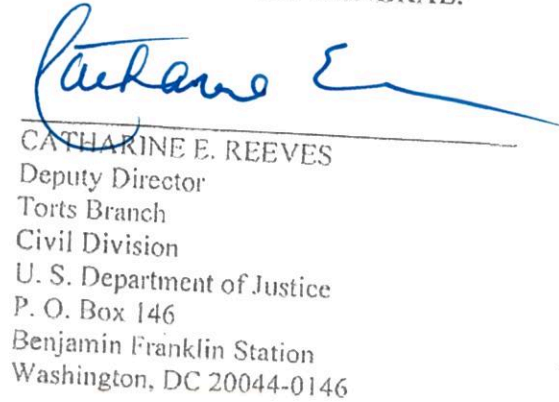 Catharine E
CATHARINE E. REEVES
Deputy Director
Torts Branch
Civil Division
U. S. Department of Justice
P. O. Box 146
Benjamin Franklin Station
Washington, DC 20044-0146